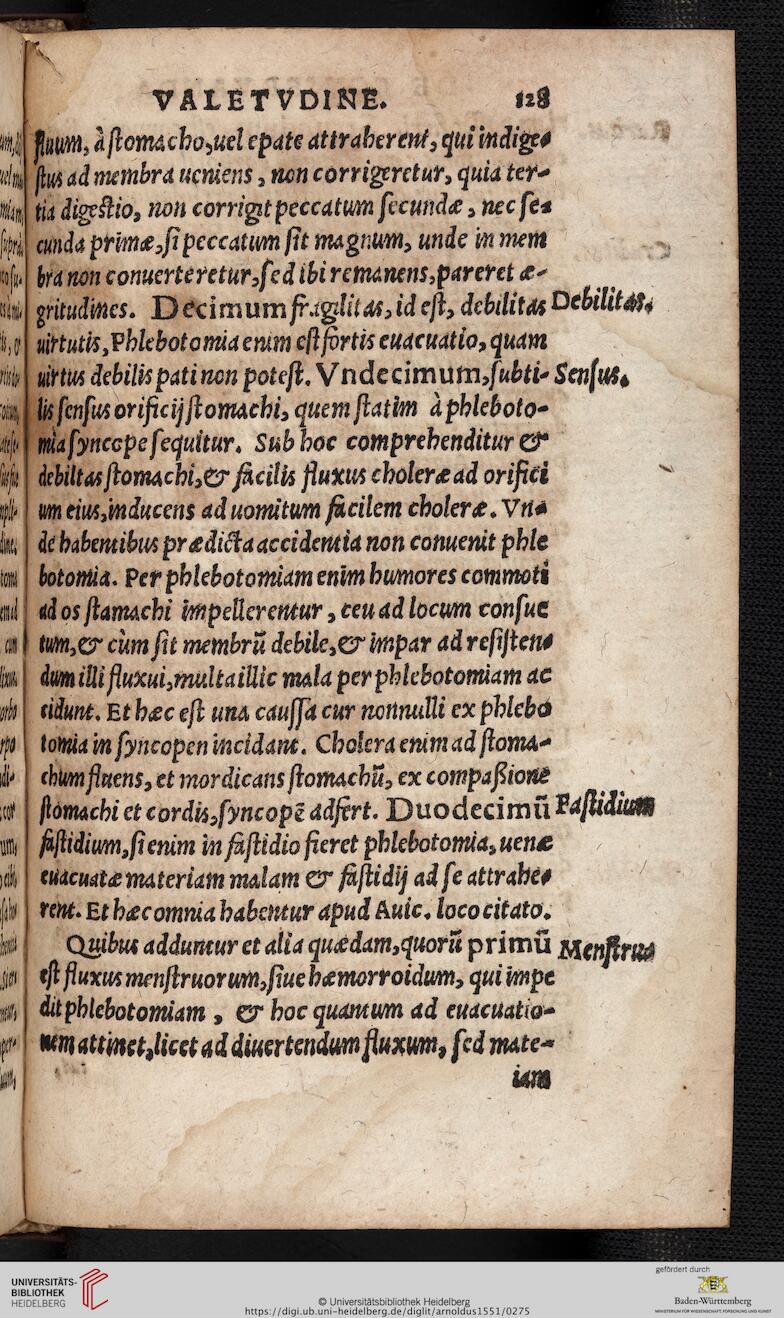 VALETVDINE. 128
fluum, à ſtomacho,uel epate attraherent, qui indige-
ſtus ad membra ueniens, non corrigeretur, quia ter-
tia digeſtio, non corrigit peccatum ſecundæ, nec ſe-
cunda primæ,ſi peccatum ſit magnum, unde in mem
bra non conuerteretur,ſed ibi remanens,pareret æ-
gritudines. Decimum fragilitas, id eſt, debilitas Debilitas.
uirtutis,Phlebotomia enim eſt fortis euacuatio, quam
uirtus debilis pati non poteſt. Vndecimum,ſubti- Senſus.
lis ſenſus orificij ſtomachi, quem ſtatim à phleboto-
mia ſyncope ſequitur. Sub hoc comprehenditur &
debiltas ſtomachi,& facilis fluxus choleræ ad orifici
um eius,inducens ad uomitum facilem choleræ. Vn-
de habentibus prædicta accidentia non conuenit phle
botomia. Per phlebotomiam enim humores commoti
ad os ſtamachi impellerentur, ceu ad locum conſue
tum,& cùm ſit membrũ debile,& impar ad reſiſten-
dum illi fluxui,multa illic mala per phlebotomiam ac
cidunt. Et hæc eſt una cauſſa cur nonnulli ex phlebo
tomia in ſyncopen incidant. Cholera enim ad ſtoma-
chum fluens, et mordicans ſtomachũ, ex compaßione
ſtomachi et cordis,ſyncopẽ adfert. Duodecimũ Faſtidium
faſtidium,ſi enim in faſtidio fieret phlebotomia, uenæ
euacuatæ materiam malam & faſtidij ad ſe attrahe-
rent. Et hæc omnia habentur apud Auic. loco citato.
Quibus adduntur et alia quædam,quorũ primũ Menſtrua
eſt fluxus menſtruorum,ſiue hæmorroidum, qui impe
dit phlebotomiam, & hoc quantum ad euacuatio-
nem attinet,licet ad diuertendum fluxum, ſed mate-
iam
UNIVERSITÄTS-
BIBLIOTHEK
HEIDELBERG
© Universitätsbibliothek Heidelberg
https://digi.ub.uni-heidelberg.de/diglit/arnoldus1551/0275
gefördert durch
Baden-Württemberg
MINISTERIUM FÜR WISSENSCHAFT, FORSCHUNG UND KUNST